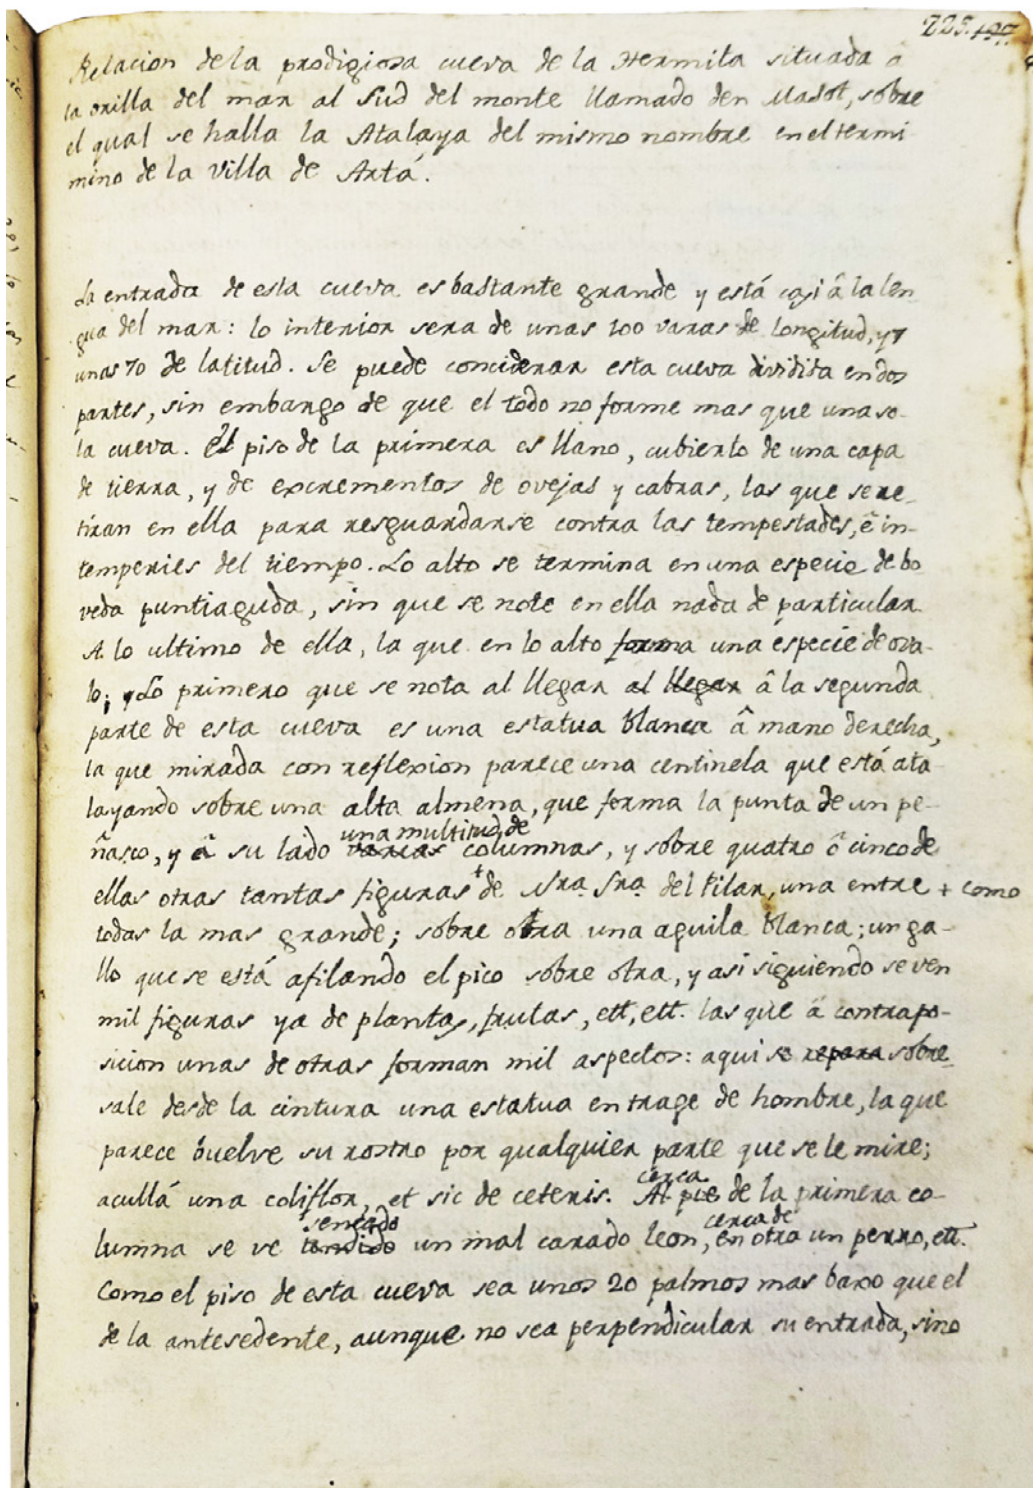 225. 197.
Relacion de la prodigiosa cueva de la Hermita situada a
la orilla del mar al Sud del monte llamado den Masot, sobre
el qual se halla la Atalaya del mismo nombre en el termi
mino de la Villa de Artá.
La entrada de esta cueva es bastante grande y está casi â la len
gua del mar: lo interior sera de unas 100 varas de longitud, y
unas 70 de latitud. Se puede conciderar esta cueva dividida en dos
partes, sin embargo de que el todo no forme mas que una so-
la cueva. El piso de la primera es llano, cubierto de una capa
de tierra, y de excrementos de ovejas y cabras, las que se re-
tiran en ella para resguardarse contra las tempestades, ê in-
temperies del tiempo. Lo alto se termina en una especie de bo
veda puntiaguda, sin que se note en ella nada de particular.
A lo ultimo de ella, la que en lo alto forma una especie de ova-
lo; y Lo primero que se nota al llegar al llegar â la segunda
parte de esta cueva es una estatua blanca â mano derecha,
la que mirada con reflexion parece una centinela que está ata
layando sobre una alta almena, que forma la punta de un pe-
una multitud de
ñasco, y â su lado varias columnas, y sobre quatro ô cinco de
ellas otras tantas figuras + de Nra. Sra. del Pilar, una entre + como
todas la mas grande; sobre otra una aguila blanca; un ga-
llo que se está afilando el pico sobre otra, y asi siguiendo se ven
mil figuras ya de plantas, frutas, ett, ett. las que â contrapo-
sicion unas de otras forman mil aspectos: aqui se repara sobre-
sale desde la cintura una estatua en trage de hombre, la que
parece buelve su rostro por qualquier parte que se le mire;
cerca
acullá una coliflor, et sic de ceteris. Al pie de la primera co-
sentado cerca de
lumna se ve tendido un mal carado leon, en otra un perro, ett.
Como el piso de esta cueva sea unos 20 palmos mas baxo que el
de la antesedente, aunque no sea perpendicular su entrada, sino